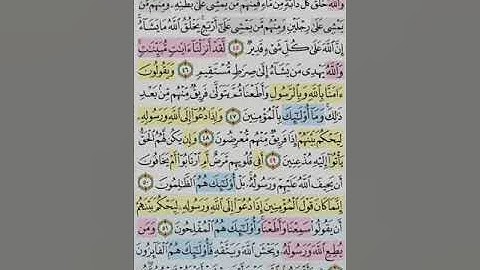 وَاللَّهُ خَلَقَ كُلَّ دَابَّةٍ مِّن مَّاءٍ فَمِنْهُم مَّن يَمْشِي عَلَىٰ بَطْنِهِ وَمِنْهُم مَّن
يَمْشِي عَلَىٰ رِجْلَيْنِ وَمِنْهُم مَّن يَمْشِي عَلَىٰ أَرْبَعٍ يَخْلُقُ اللَّهُ مَا يَشَاءُ
إِنَّ اللَّهَ عَلَىٰ كُلِّ شَيْءٍ قَدِيرٌ ٤٥ لَّقَدْ أَنزَلْنَا ءَايَٰتٍ مُّبَيِّنَٰتٍ
وَاللَّهُ يَهْدِي مَن يَشَاءُ إِلَىٰ صِرَٰطٍ مُّسْتَقِيمٍ ٤٦ وَيَقُولُونَ
ءَامَنَّا بِاللَّهِ وَبِالرَّسُولِ وَأَطَعْنَا ثُمَّ يَتَوَلَّىٰ فَرِيقٌ مِّنْهُم مِّن بَعْدِ
ذَٰلِكَ وَمَا أُوْلَٰئِكَ بِالْمُؤْمِنِينَ ٤٧ وَإِذَا دُعُوا إِلَى اللَّهِ وَرَسُولِهِ
لِيَحْكُمَ بَيْنَهُمْ إِذَا فَرِيقٌ مِّنْهُم مُّعْرِضُونَ ٤٨ وَإِن يَكُن لَّهُمُ الْحَقُّ
يَأْتُوا إِلَيْهِ مُذْعِنِينَ ٤٩ أَفِي قُلُوبِهِم مَّرَضٌ أَمِ ارْتَابُوا أَمْ يَخَافُونَ
أَن يَحِيفَ اللَّهُ عَلَيْهِمْ وَرَسُولُهُ بَلْ أُوْلَٰئِكَ هُمُ الظَّٰلِمُونَ ٥٠
إِنَّمَا كَانَ قَوْلَ الْمُؤْمِنِينَ إِذَا دُعُوا إِلَى اللَّهِ وَرَسُولِهِ لِيَحْكُمَ بَيْنَهُمْ
أَن يَقُولُوا سَمِعْنَا وَأَطَعْنَا وَأُوْلَٰئِكَ هُمُ الْمُفْلِحُونَ ٥١ وَمَن
يُطِعِ اللَّهَ وَرَسُولَهُ وَيَخْشَ اللَّهَ وَيَتَّقْهِ فَأُوْلَٰئِكَ هُمُ الْفَائِزُونَ